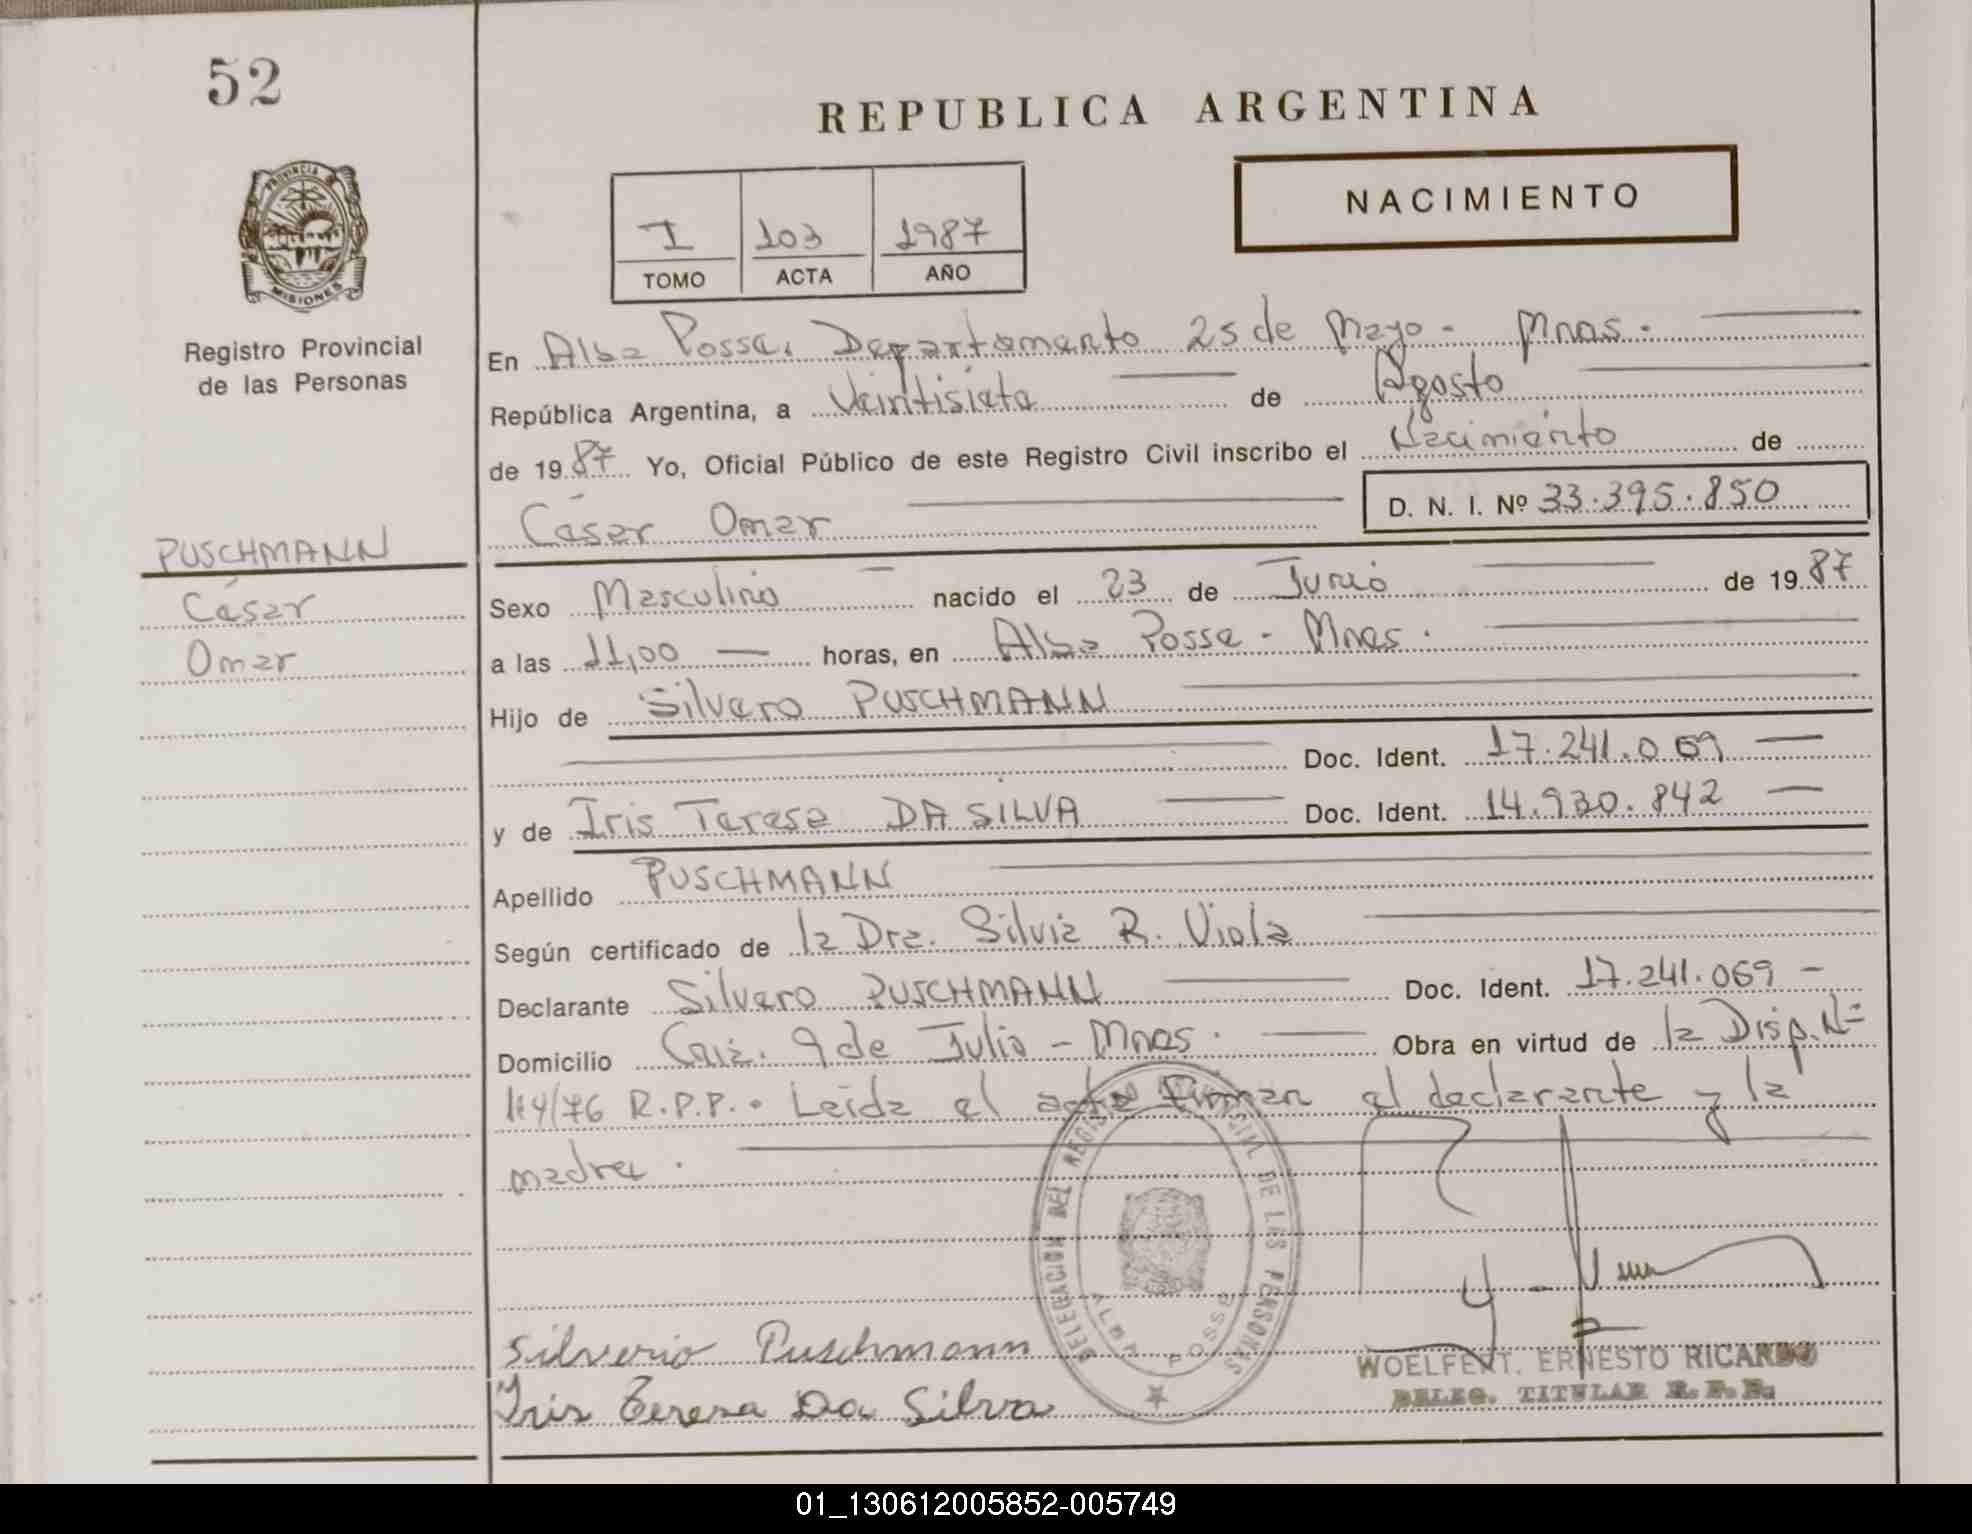 52
REPUBLICA ARGENTINA
NACIMIENTO
PROVINCIA DE
MISIONES
Registro Provincial
de las Personas
I 103 1987
TOMO ACTA AÑO
En Alba Posse, Departamento 25 de Mayo - Mnes.
República Argentina, a Veintisiete de Agosto
de 1987 Yo, Oficial Público de este Registro Civil inscribo el Nacimiento de
César Omar D. N. I. Nº 33.395.850
PUSCHMANN
César
Omar
Sexo Masculino nacido el 23 de Junio de 1987
a las 11,00 horas, en Alba Posse - Mnes.
Hijo de Silvero PUSCHMANN
Doc. Ident. 17.241.069
y de Iris Teresa DA SILVA Doc. Ident. 14.930.842
Apellido PUSCHMANN
Según certificado de la Dra. Silvia R. Viola
Declarante Silvero PUSCHMANN Doc. Ident. 17.241.069
Domicilio 9 de Julio - Mnes. Obra en virtud de la Disp. Nº
114/76 R.P.P.. Leída el acta Firman el declarante y la
madre.
DELEGACION DEL REGISTRO CIVIL DE LAS PERSONAS
ALBA POSSE
Silverio Puschmann
Iris Teresa Da Silva
WOELFERT, ERNESTO RICARDO
DELEG. TITULAR R.P.P.
01_130612005852-005749